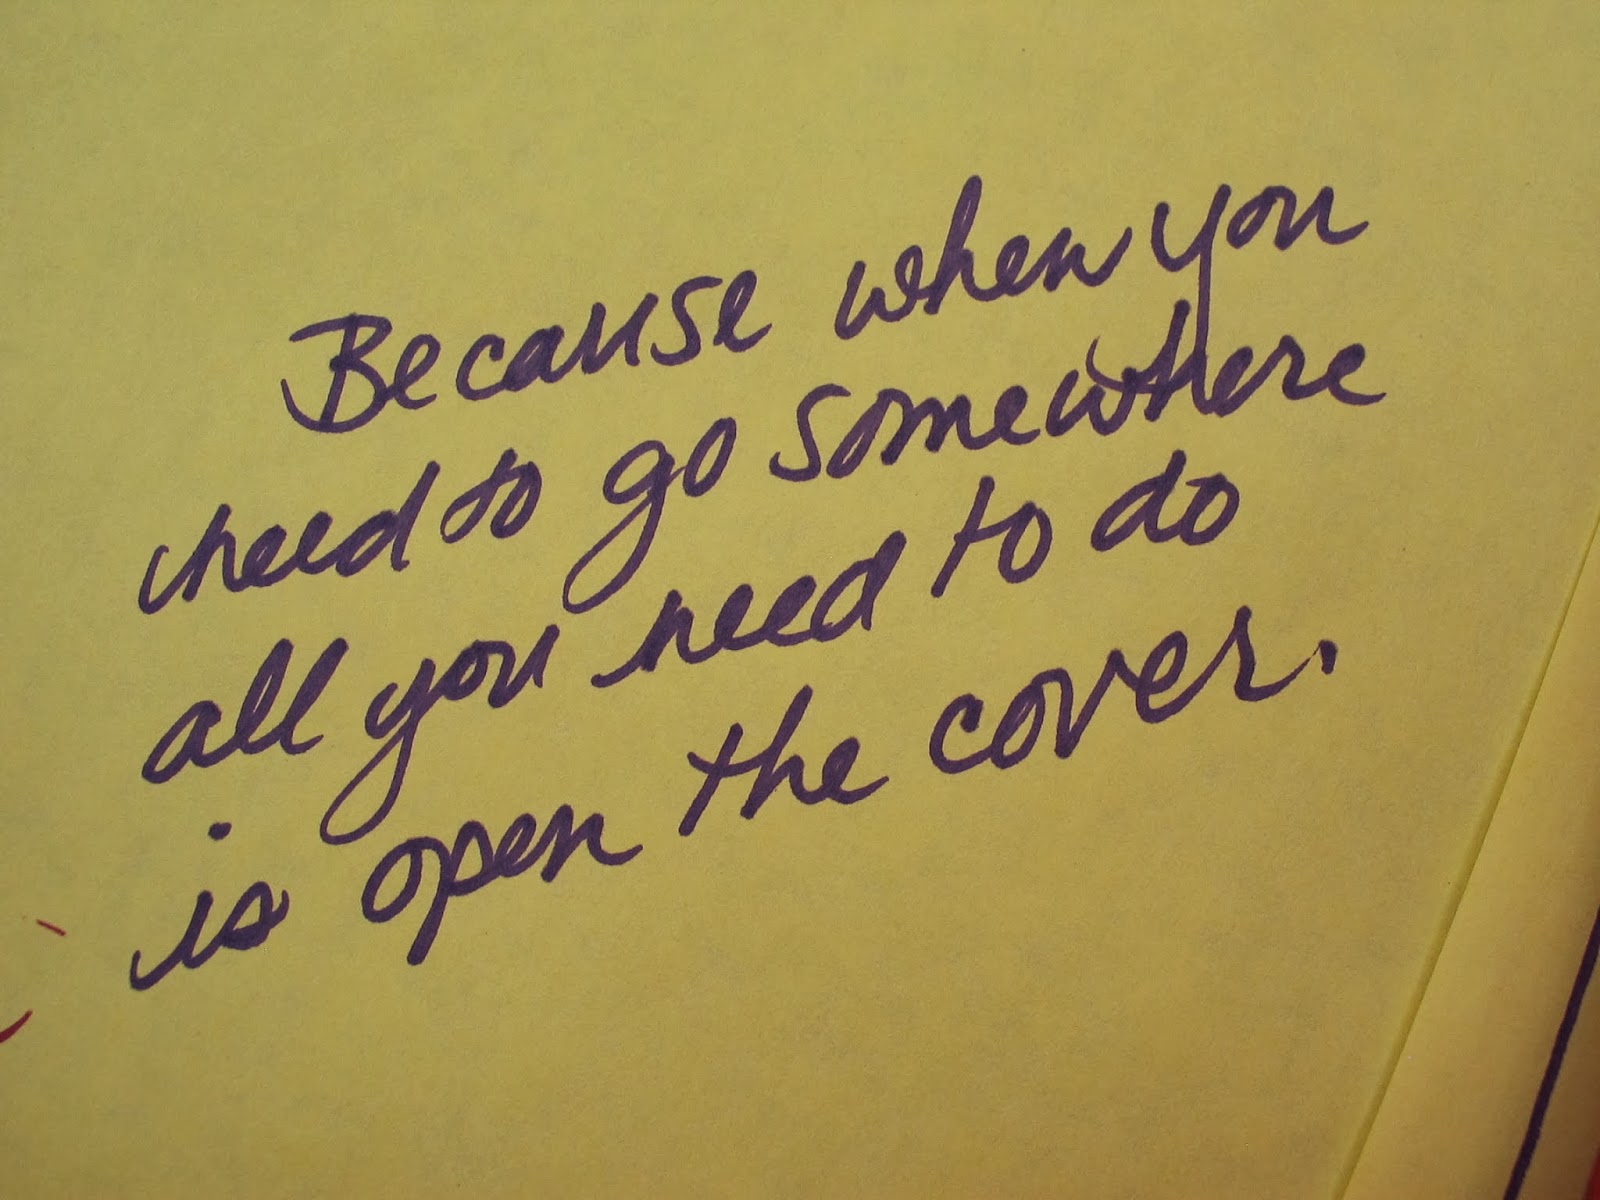 Because when you
need to go somewhere
all you need to do
is open the cover.